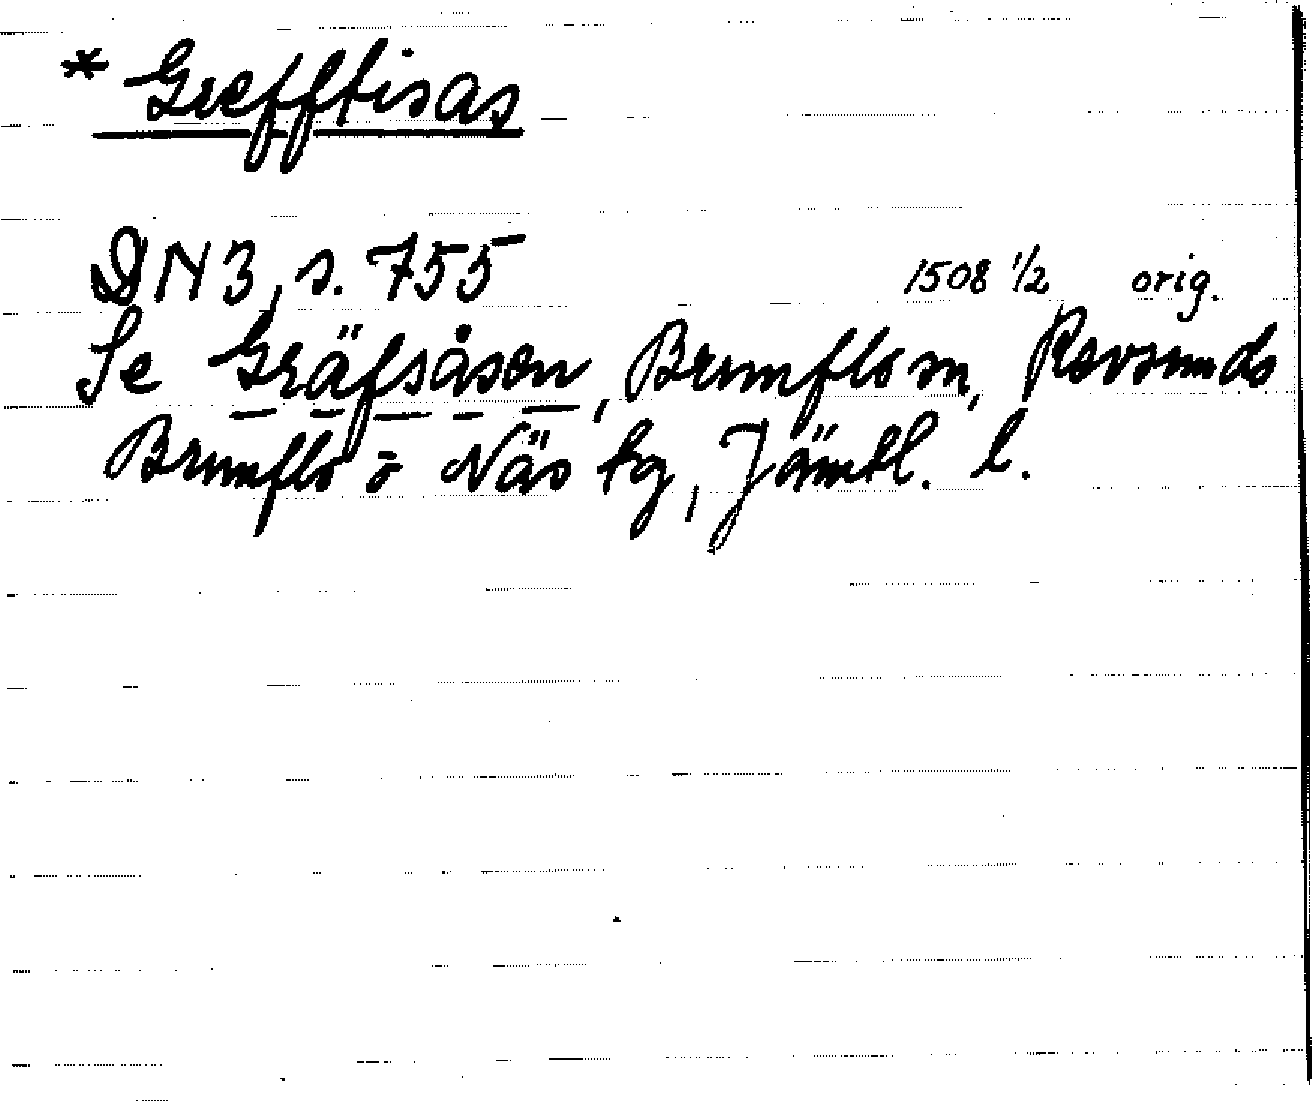 * Grefftisas
DN 3, s. 755 1508 1/2 orig.
Se Gräfsåsen, Brunflo sn, Revsunds
Brunflo o Näs tg, Jämtl. l.